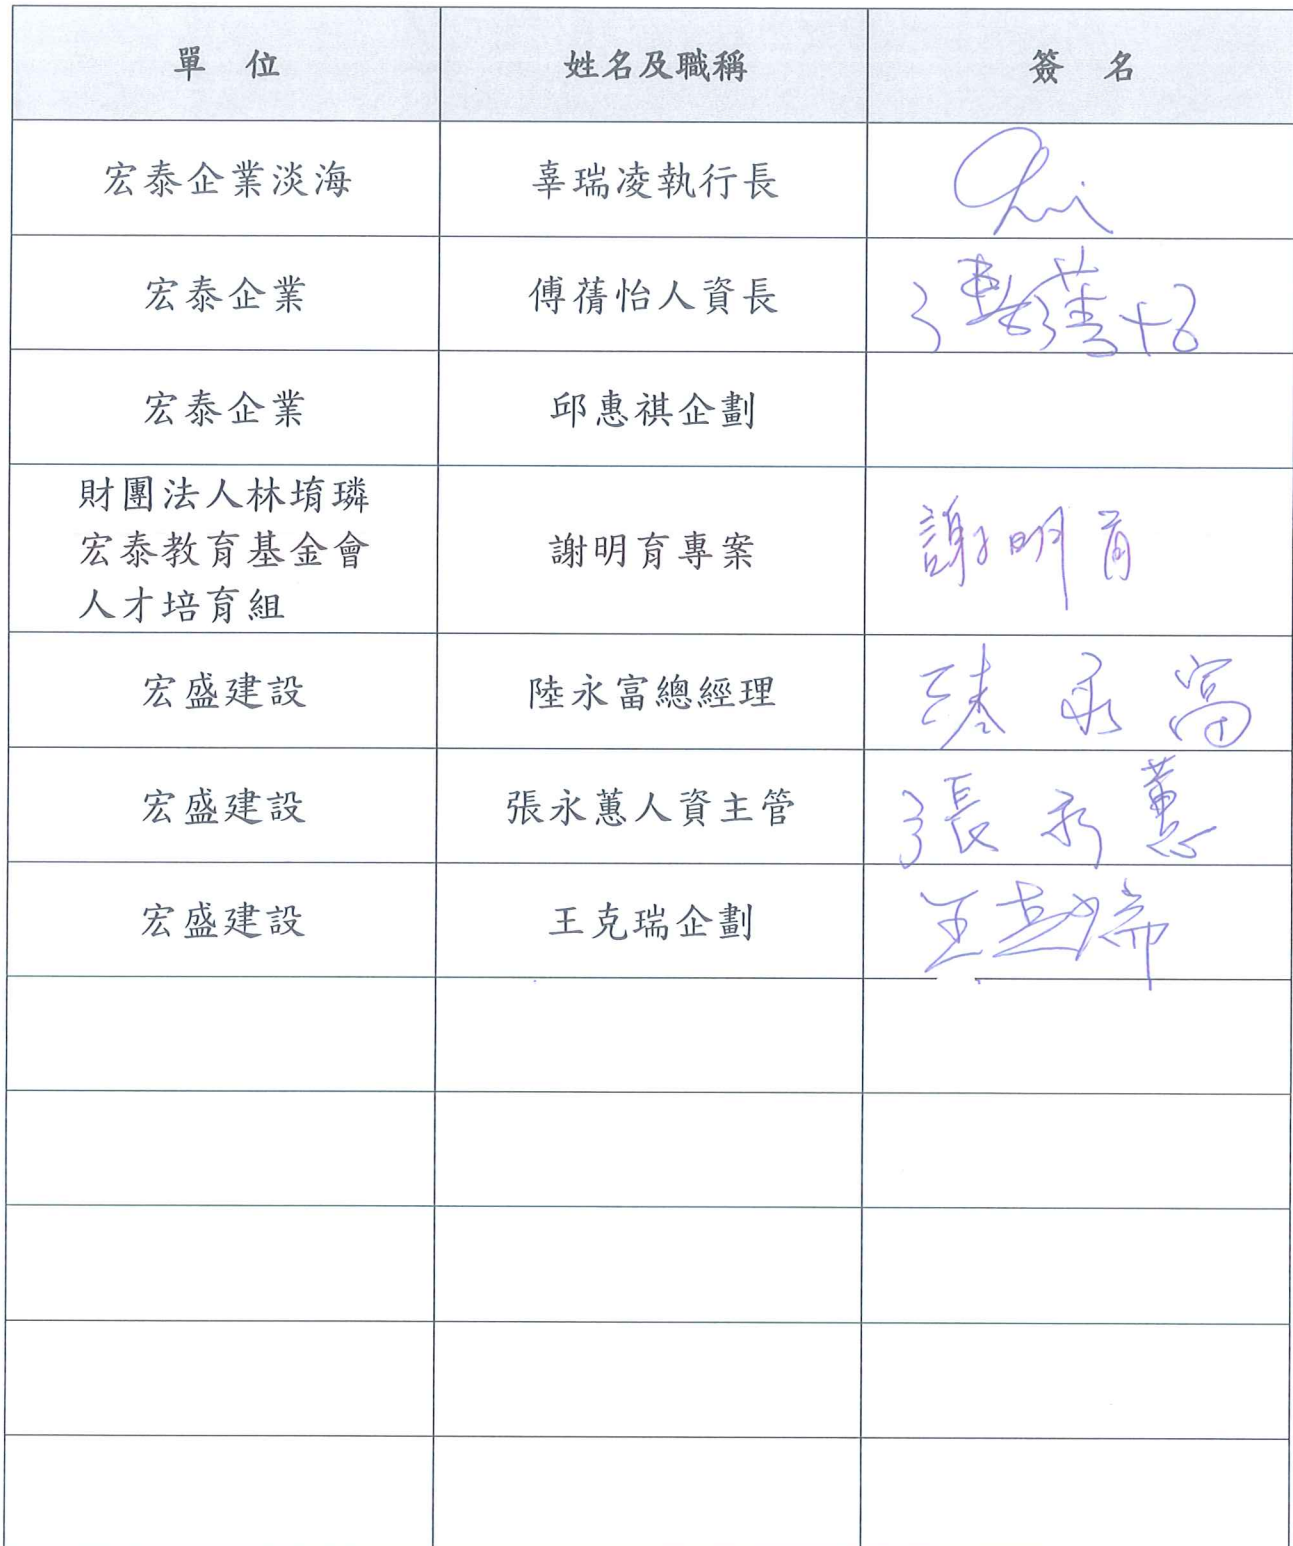 單 位 姓名及職稱 簽 名
宏泰企業淡海 辜瑞凌執行長
宏泰企業 傅蒨怡人資長
宏泰企業 邱惠祺企劃
財團法人林堉璘
宏泰教育基金會
人才培育組
謝明育專案 謝明育
宏盛建設 陸永富總經理 陸永富
宏盛建設 張永蕙人資主管 張永蕙
宏盛建設 王克瑞企劃 王克瑞